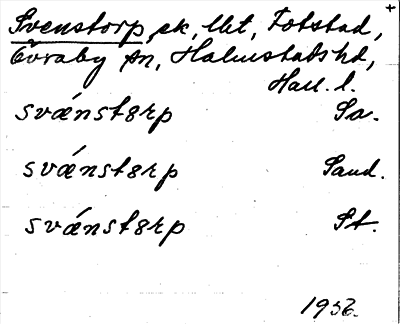 Svenstorp, sk, lht, Fotstad, +
Övraby sn, Halmstads hd,
Hall. l.
svánstɛrp Sa.
svánstɛrp Sand.
svánstɛrp St.
1936.